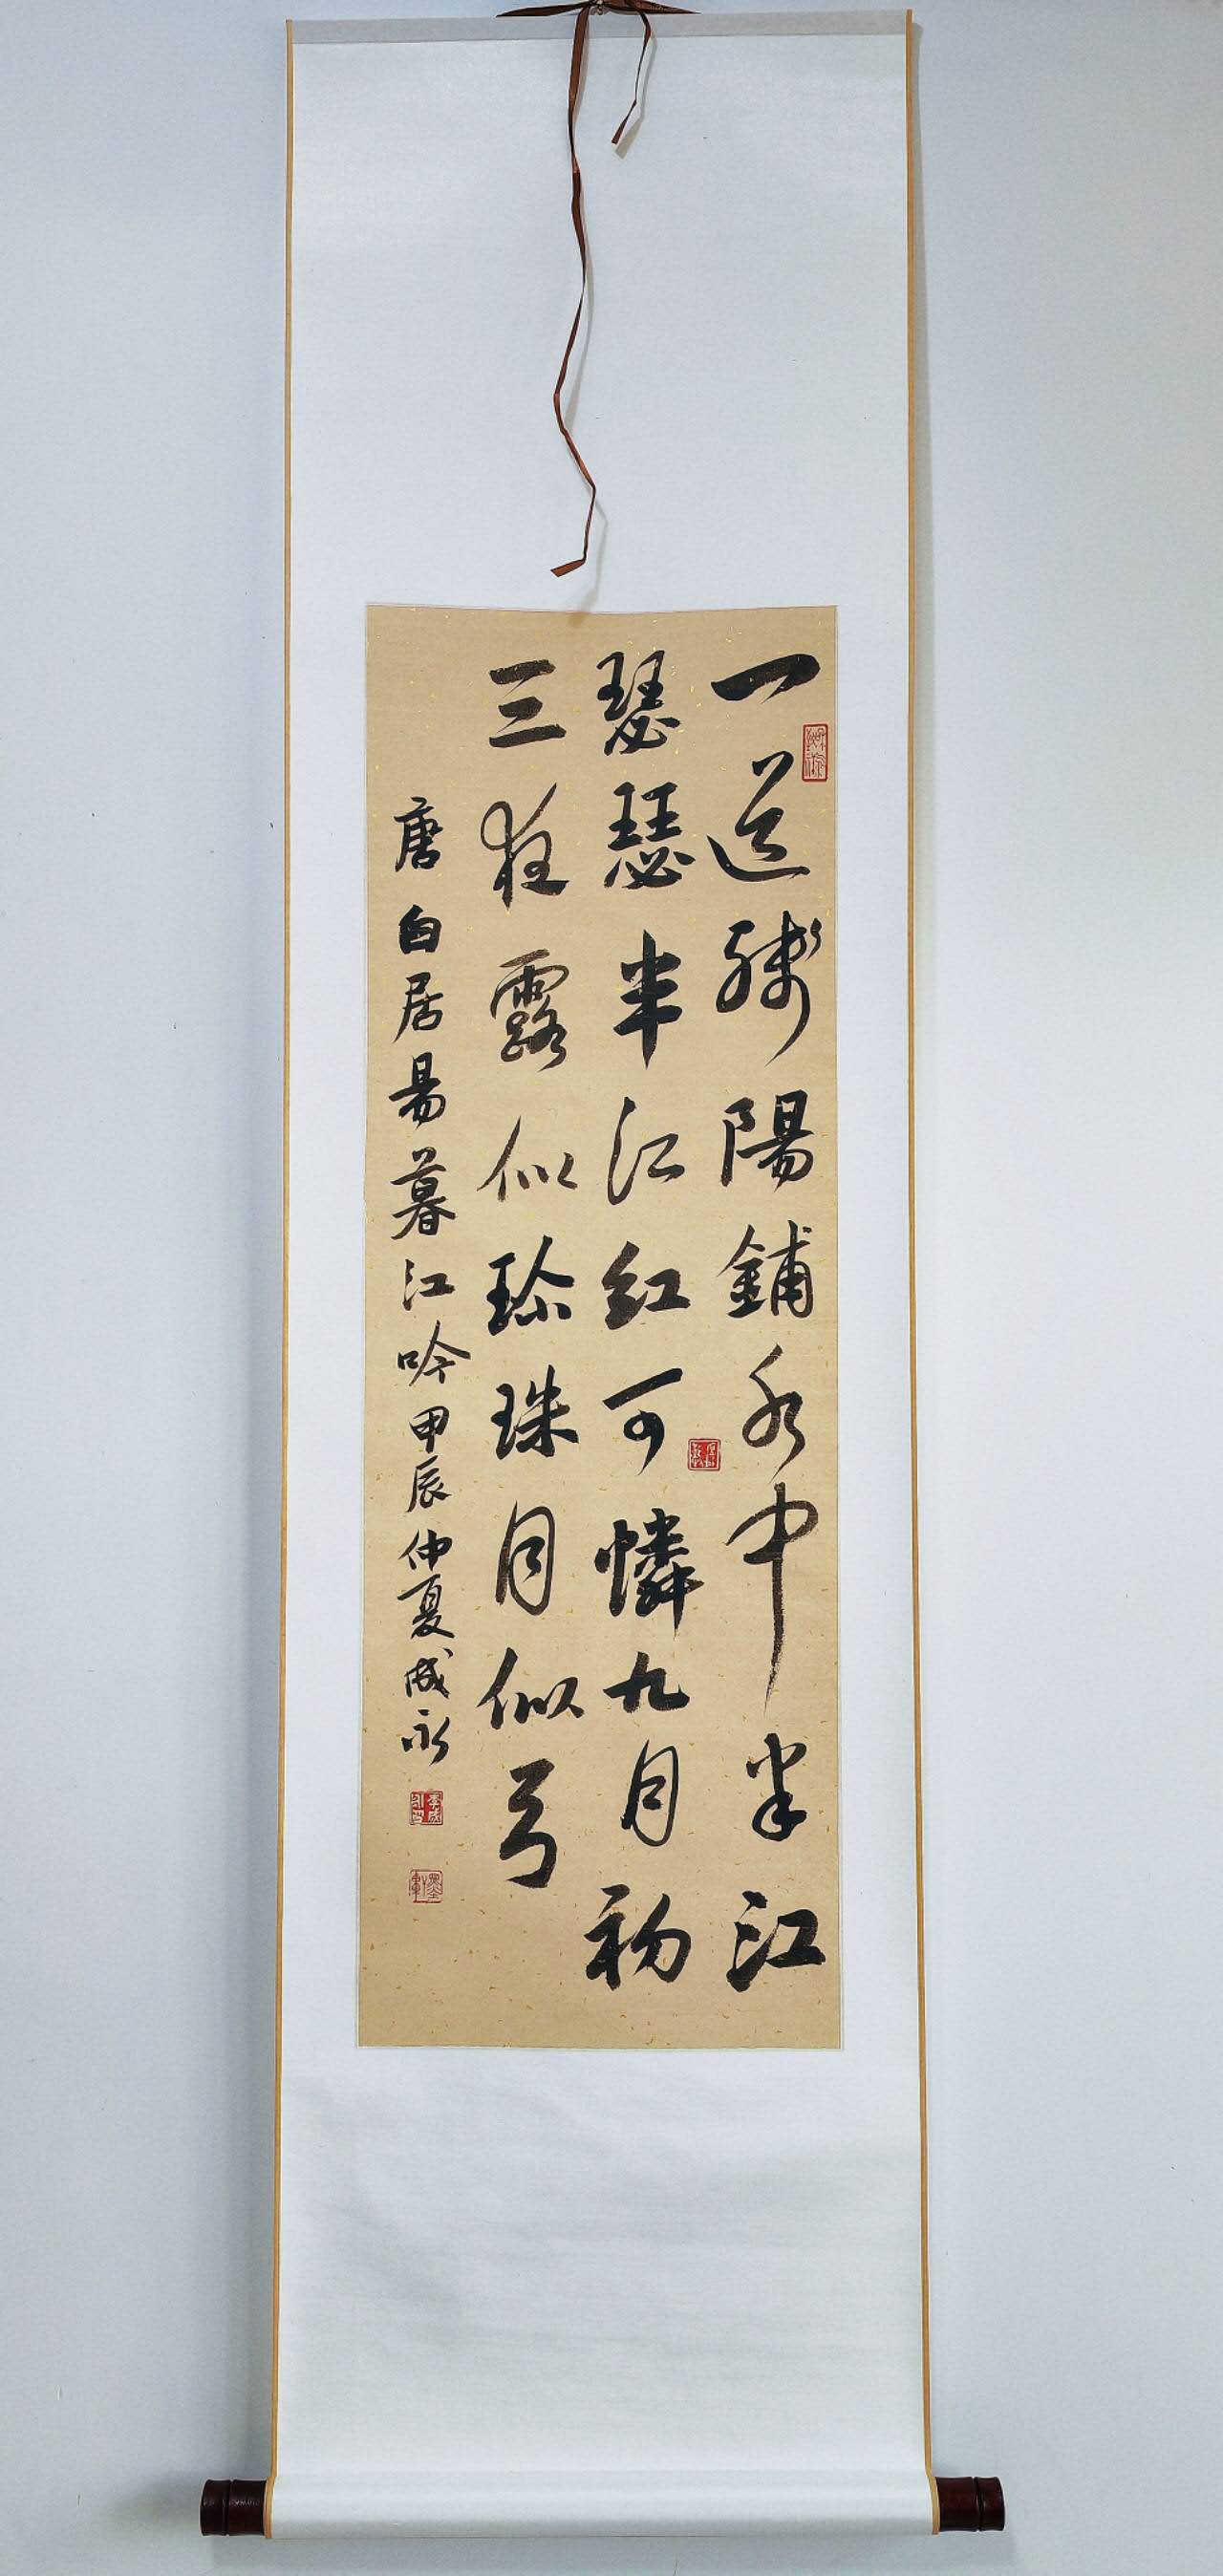 一道殘陽鋪水中半江
瑟瑟半江紅可憐九月初
三夜露似珎珠月似弓
唐白居易暮江吟甲辰仲夏成永